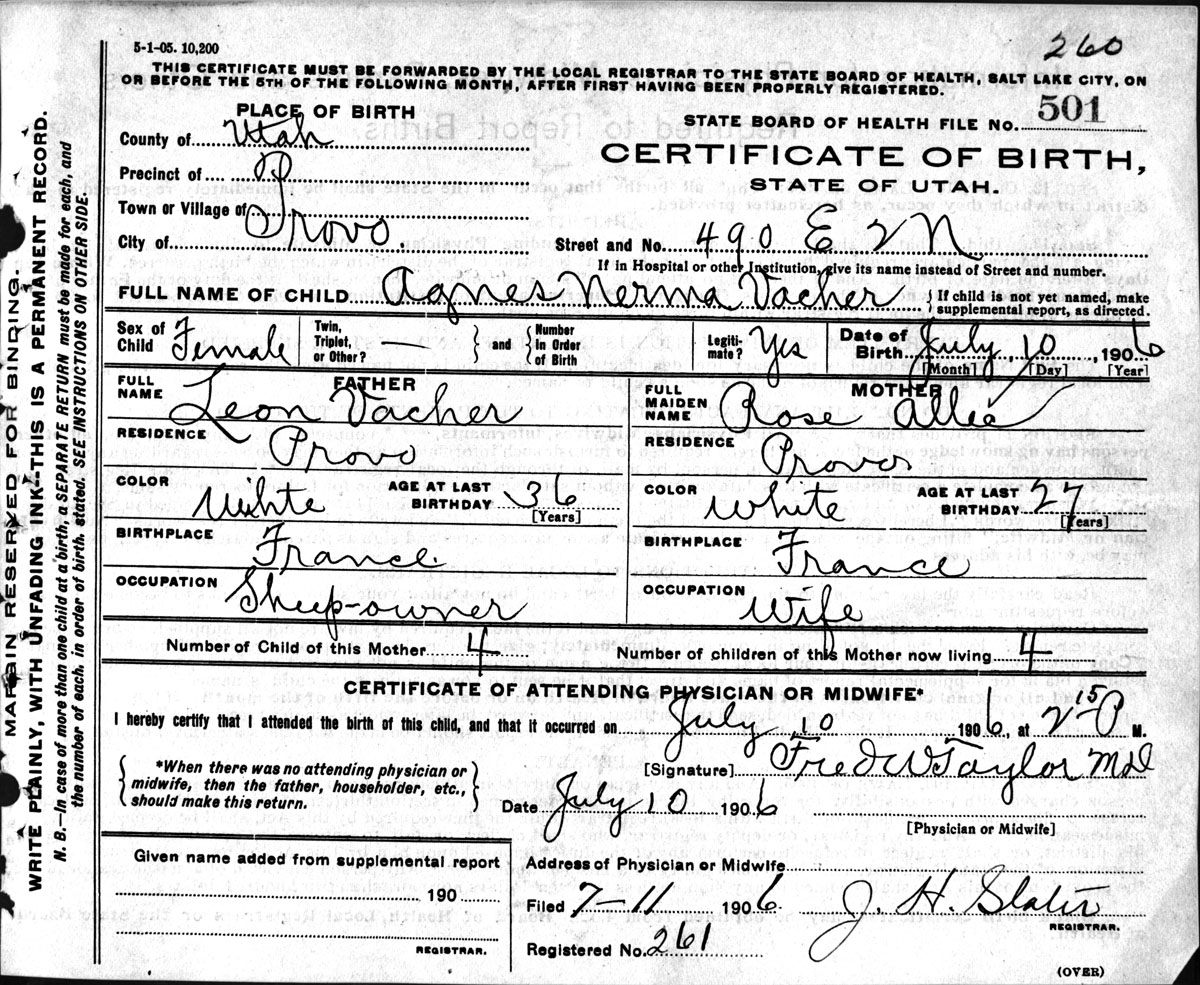 260
5-1-05. 10,200
THIS CERTIFICATE MUST BE FORWARDED BY THE LOCAL REGISTRAR TO THE STATE BOARD OF HEALTH, SALT LAKE CITY, ON
OR BEFORE THE 5TH OF THE FOLLOWING MONTH, AFTER FIRST HAVING BEEN PROPERLY REGISTERED.
PLACE OF BIRTH
STATE BOARD OF HEALTH FILE No. 501
County of Utah
CERTIFICATE OF BIRTH,
STATE OF UTAH.
Precinct of P
Town or Village of
City of Provo.
Street and No. 490 E 2 N
If in Hospital or other Institution, give its name instead of Street and number.
FULL NAME OF CHILD Agnes Nerma Vacher { If child is not yet named, make supplemental report, as directed.
Sex of Child Female
Twin, Triplet, or Other? —
} and { Number in Order of Birth
Legiti-mate? Yes
Date of Birth July 10, 1906
[Month] [Day] [Year]
FATHER
FULL NAME Leon Vacher
MOTHER
FULL MAIDEN NAME Rose Allié
RESIDENCE Provo
RESIDENCE Provo
COLOR White AGE AT LAST BIRTHDAY 36 [Years]
COLOR White AGE AT LAST BIRTHDAY 27 [Years]
BIRTHPLACE France
BIRTHPLACE France
OCCUPATION Sheep-owner
OCCUPATION Wife
Number of Child of this Mother 4
Number of children of this Mother now living 4
CERTIFICATE OF ATTENDING PHYSICIAN OR MIDWIFE*
I hereby certify that I attended the birth of this child, and that it occurred on July 10 1906, at 2 15 P M.
{ *When there was no attending physician or midwife, then the father, householder, etc., should make this return. }
[Signature] Fred W Taylor MD
Date July 10 1906
[Physician or Midwife]
Given name added from supplemental report
190
REGISTRAR.
Address of Physician or Midwife
Filed 7-11 1906.
J. H. Slater
REGISTRAR.
Registered No. 261
(OVER)
MARGIN RESERVED FOR BINDING.
WRITE PLAINLY, WITH UNFADING INK--THIS IS A PERMANENT RECORD.
N. B.—In case of more than one child at a birth, a SEPARATE RETURN must be made for each, and
the number of each, in order of birth, stated. SEE INSTRUCTIONS ON OTHER SIDE.